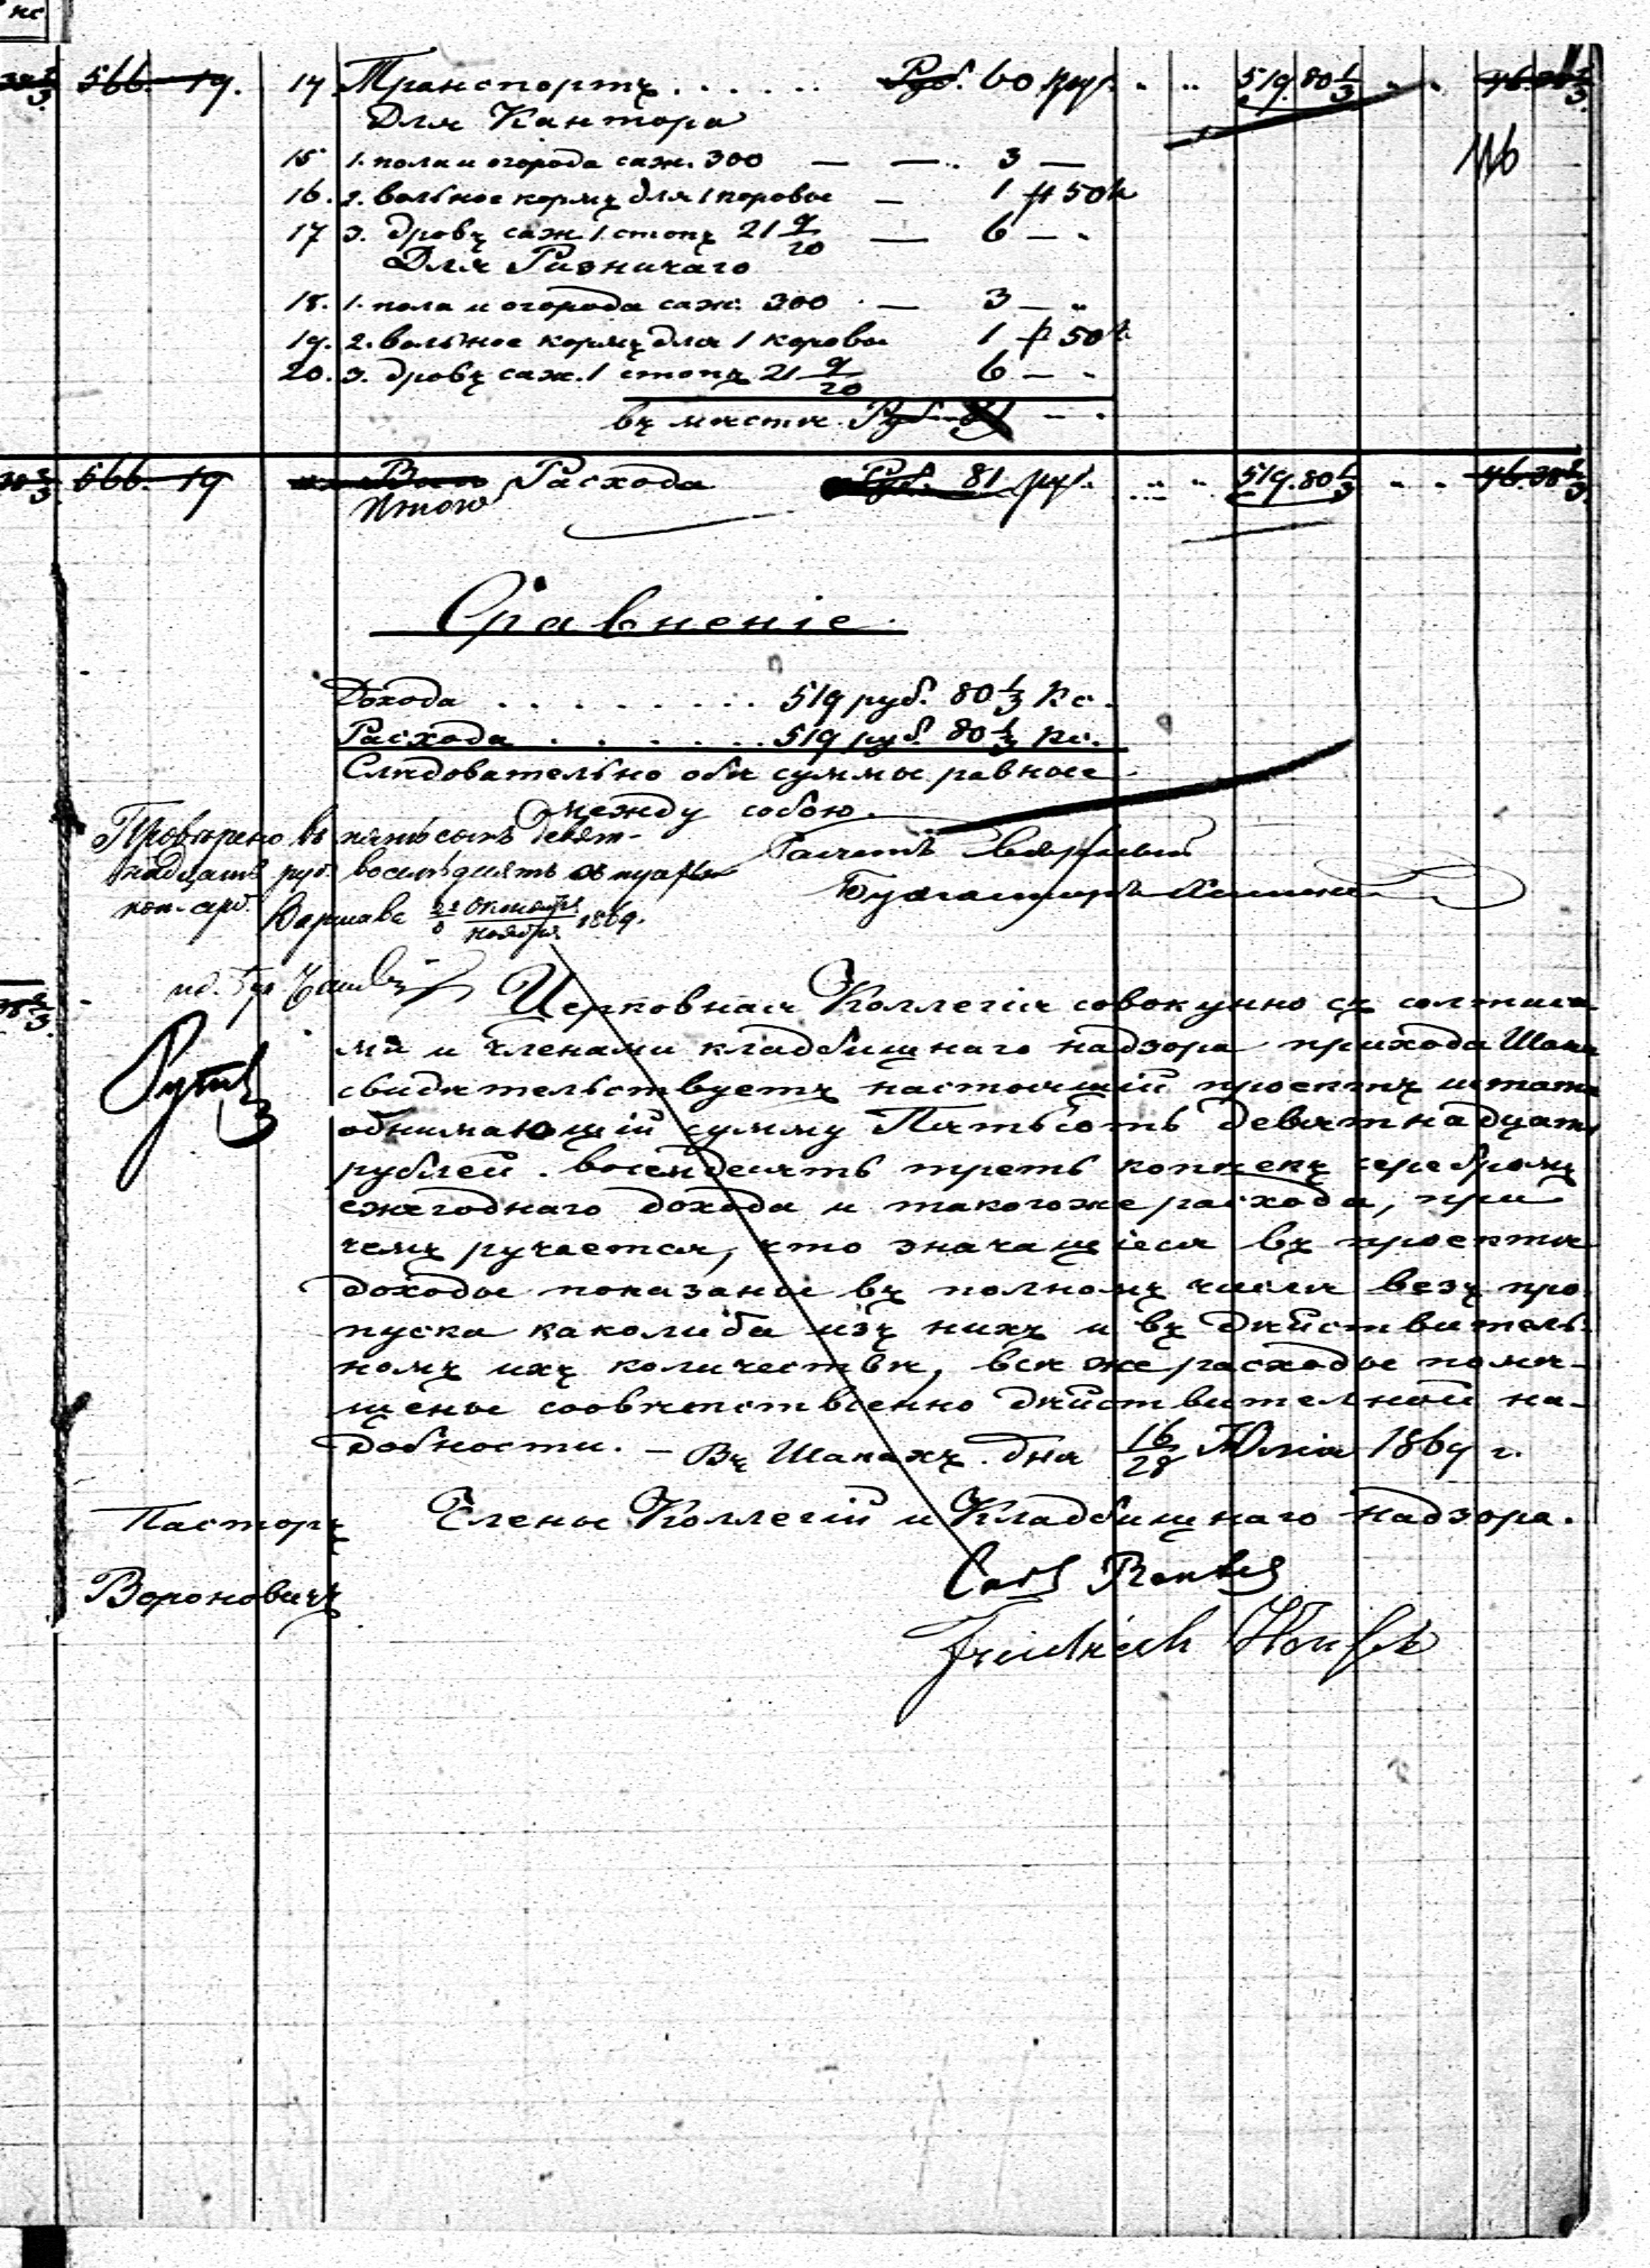 566. 19. 14 Транспортъ . . . . . Руб. 60 руб. 519. 80 1/3
Для Кантора
15 1. поля и огорода саж. 300 — — 3 —
16. 2. вольное кормъ для 1 коровы — 1 р 50 к
17 3. дровъ саж 1. стопъ 21 9/20 — 6 —
Для Ризничаго
18. 1. поля и огорода саж: 300 — 3 —
19. 2. вольное кормъ для 1 коровы 1 р 50 к
20. 3. дровъ саж. 1 стопъ 21 9/20 6 —
въ мѣстѣ Руб. 81 —
566. 19 Расхода Руб. 81 руб. 519. 80 1/3 46. 38 2/3
Итого
Сравненіе
Дохода . . . . . . . . 519 руб. 80 1/3 Кс.
Расхода . . . . . . . 519 руб. 80 1/3 Кс.
Слѣдовательно обѣ суммы равные
между собою.
Провѣрено въ пятьсотъ девят-
надцать руб. восемьдесятъ
коп. сер.
Варшава Октября/Ноября 1869.
Бухгалтеръ
Церковная Коллегія совокупно съ солтыса-
ми и членами кладбищнаго надзора прихода
свидѣтельствуетъ настоящій проектъ штата
обнимающій сумму Пятьсотъ девятнадцать
рублей восемдесятъ треть копѣекъ серебромъ
ежегоднаго дохода и такогоже расхода, при
чемъ ручается, что значащіеся въ проектѣ
доходы показаны въ полномъ числѣ безъ про-
пуска каколиба изъ нихъ и въ дѣйствитель-
номъ ихъ количествѣ, всѣ же расходы помѣ-
щены соовѣтственно дѣйствителной на-
добности. — Въ Шакахъ. дня 16/28 Юлія 1869 г.
Пасторъ Члены Коллегіи и Кладбищнаго надзора.
Вороновичъ
Carl
Friedrich